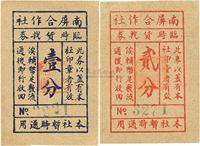 南屏合作社
臨時找券
壹分
此券以蓋有本
社印章者有效
俟輔幣足敷流
通後即行收回
№
本社暫時通用
南屏合作社
臨時找券
貳分
此券以蓋有本
社印章者有效
俟輔幣足敷流
通後即行收回
№
本社暫時通用